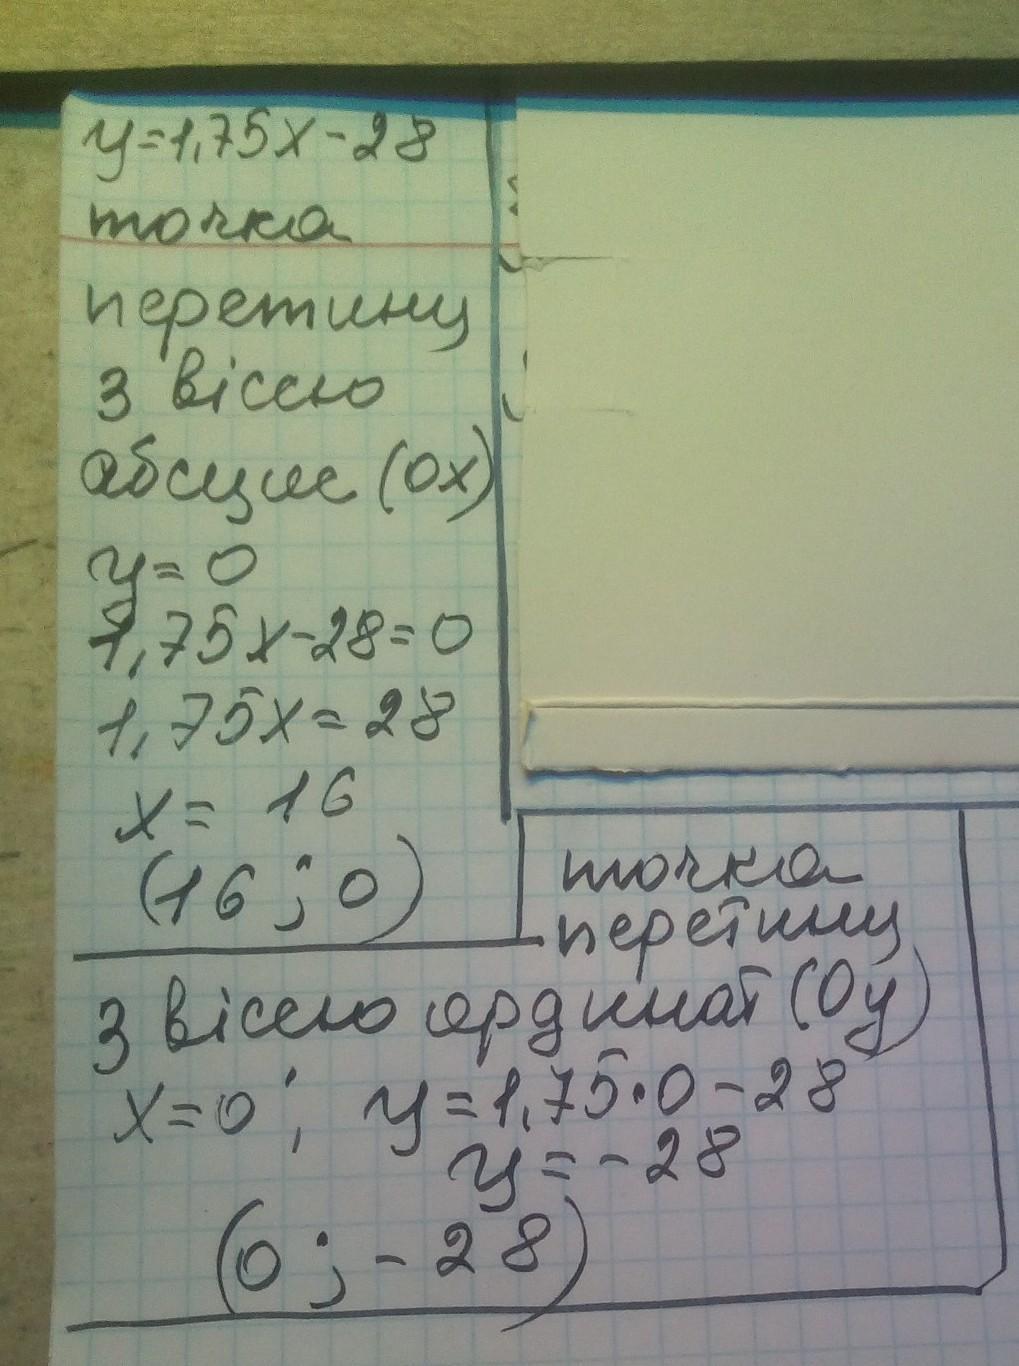 y=1,75x-28
точка
перетину
з віссю
абсцис (0x)
y=0
1,75x-28=0
1,75x=28
x= 16
(16 ; 0)
точка
перетину
з віссю ординат (0y)
x=0 ; y=1,75•0-28
y=-28
(0 ; -28)